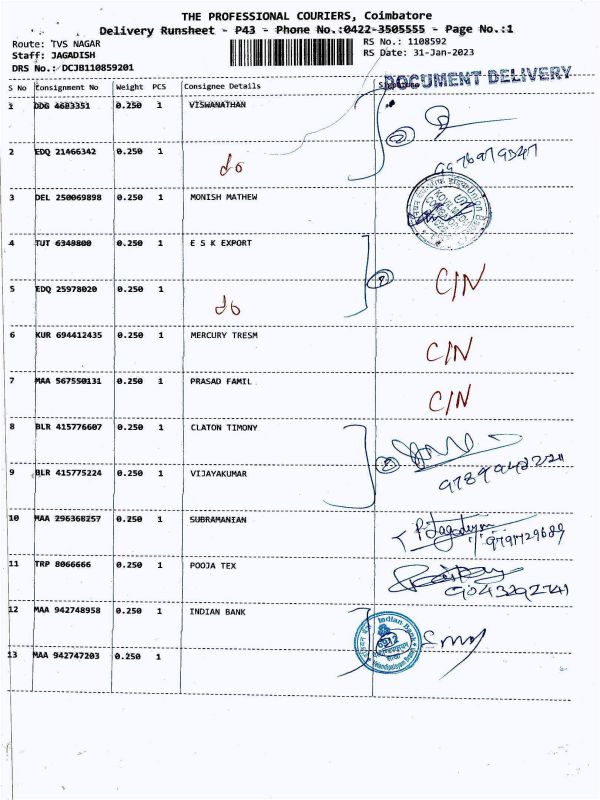 THE PROFESSIONAL COURIERS, Coimbatore
Delivery Runsheet - P43 - Phone No.:0422-3505555 - Page No.:1
Route: TVS NAGAR
RS No.: 1108592
Staff: JAGADISH
RS Date: 31-Jan-2023
DRS No.: DCJB110859201
DOCUMENT DELIVERY
S No Consignment No Weight PCS Consignee Details
1 DDG 4683351 0.250 1 VISWANATHAN
2 EDQ 21466342 0.250 1 do
3 DEL 250069898 0.250 1 MONISH MATHEW
Union Bank
4 TUT 6349800 0.250 1 E S K EXPORT
5 EDQ 25978020 0.250 1 do C/N
6 KUR 694412435 0.250 1 MERCURY TRESM C/N
7 MAA 567550131 0.250 1 PRASAD FAMIL C/N
8 BLR 415776607 0.250 1 CLATON TIMONY
9 BLR 415775224 0.250 1 VIJAYAKUMAR
10 MAA 296368257 0.250 1 SUBRAMANIAN
9791729689
11 TRP 8066666 0.250 1 POOJA TEX
9043292741
12 MAA 942748958 0.250 1 INDIAN BANK
Indian Bank
13 MAA 942747203 0.250 1